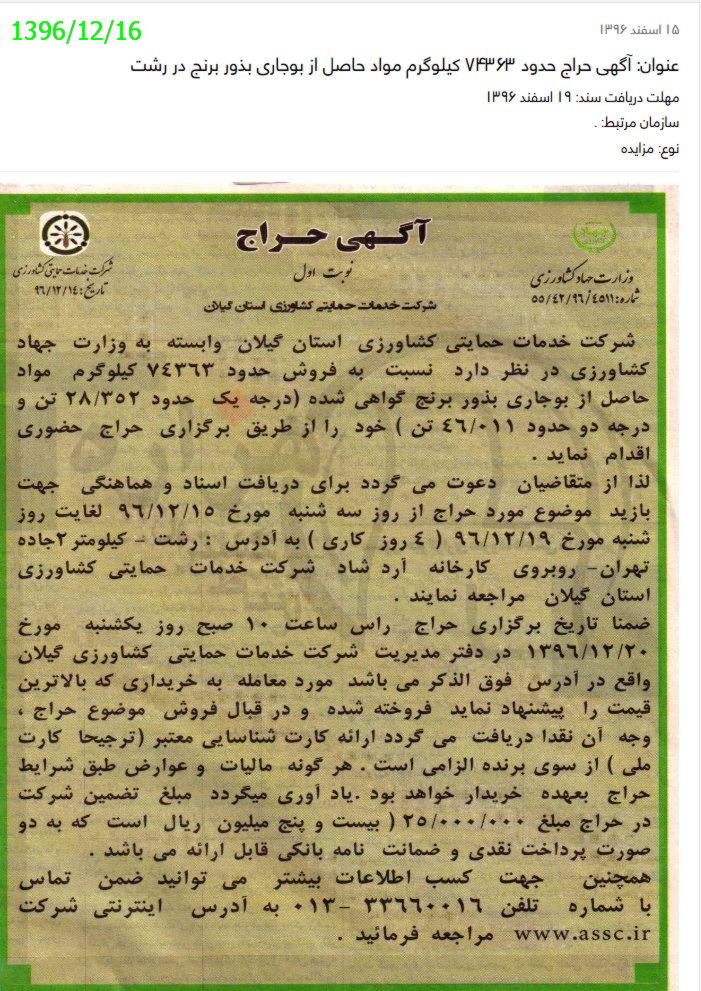 1396/12/16
۱۵ اسفند ۱۳۹۶
عنوان: آگهی حراج حدود ۷۴۳۶۳ کیلوگرم مواد حاصل از بوجاری بذور برنج در رشت
مهلت دریافت سند: ۱۹ اسفند ۱۳۹۶
سازمان مرتبط: .
نوع: مزایده
آگهی حراج
نوبت اول
شرکت خدمات حمایتی کشاورزی استان گیلان
وزارت جهاد کشاورزی
شماره: ۵۵/۴۲/۹۶/۴۵۱۱
شرکت خدمات حمایتی کشاورزی
تاریخ: ۹۶/۱۲/۱۴
شرکت خدمات حمایتی کشاورزی استان گیلان وابسته به وزارت جهاد
کشاورزی در نظر دارد نسبت به فروش حدود ۷٤۳٦۳ کیلوگرم مواد
حاصل از بوجاری بذور برنج گواهی شده (درجه یک حدود ۲۸/۳۵۲ تن و
درجه دو حدود ٤٦/۰۱۱ تن ) خود را از طریق برگزاری حراج حضوری
اقدام نماید .
لذا از متقاضیان دعوت می گردد برای دریافت اسناد و هماهنگی جهت
بازید موضوع مورد حراج از روز سه شنبه مورخ ۹٦/۱۲/۱۵ لغایت روز
شنبه مورخ ۹٦/۱۲/۱۹ ( ٤ روز کاری ) به آدرس : رشت - کیلومتر ۲جاده
تهران- روبروی کارخانه آرد شاد شرکت خدمات حمایتی کشاورزی
استان گیلان مراجعه نمایند .
ضمنا تاریخ برگزاری حراج راس ساعت ۱۰ صبح روز یکشنبه مورخ
۱۳۹٦/۱۲/۲۰ در دفتر مدیریت شرکت خدمات حمایتی کشاورزی گیلان
واقع در آدرس فوق الذکر می باشد مورد معامله به خریداری که بالاترین
قیمت را پیشنهاد نماید فروخته شده و در قبال فروش موضوع حراج ،
وجه آن نقدا دریافت می گردد ارائه کارت شناسایی معتبر (ترجیحا کارت
ملی ) از سوی برنده الزامی است . هر گونه مالیات و عوارض طبق شرایط
حراج بعهده خریدار خواهد بود .یاد آوری میگردد مبلغ تضمین شرکت
در حراج مبلغ ۲۵/۰۰۰/۰۰۰ ( بیست و پنج میلیون ریال است که به دو
صورت پرداخت نقدی و ضمانت نامه بانکی قابل ارائه می باشد .
همچنین جهت کسب اطلاعات بیشتر می توانید ضمن تماس
با شماره تلفن ۳۳٦٦۰۰۱٦ -۰۱۳ به آدرس اینترنتی شرکت
www.assc.ir مراجعه فرمائید .